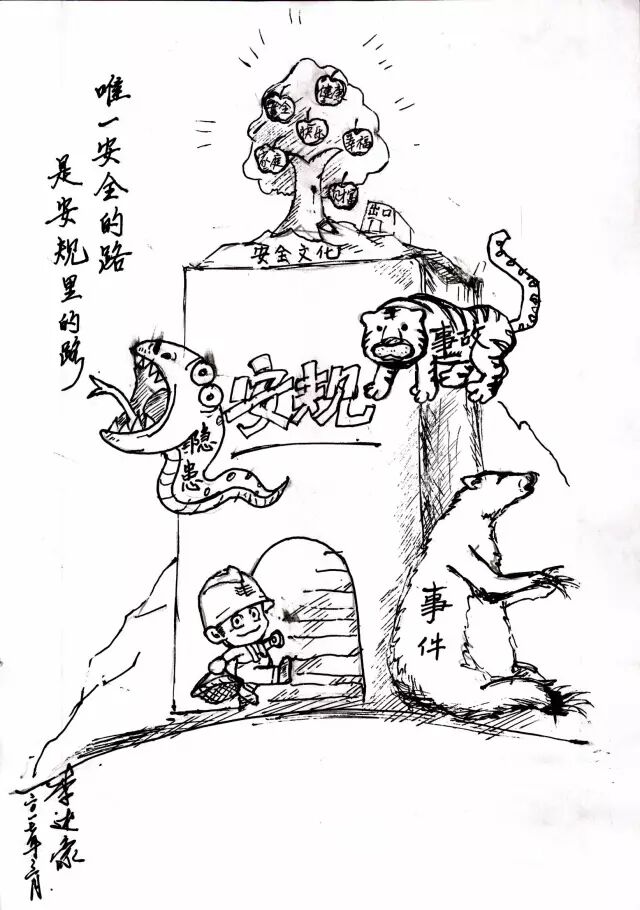 唯一安全的路
是安规里的路
安全
健康
快乐
幸福
家庭
财富
出口
安全文化
事故
安规
隐患
事件
李达豪
二〇一七年三月